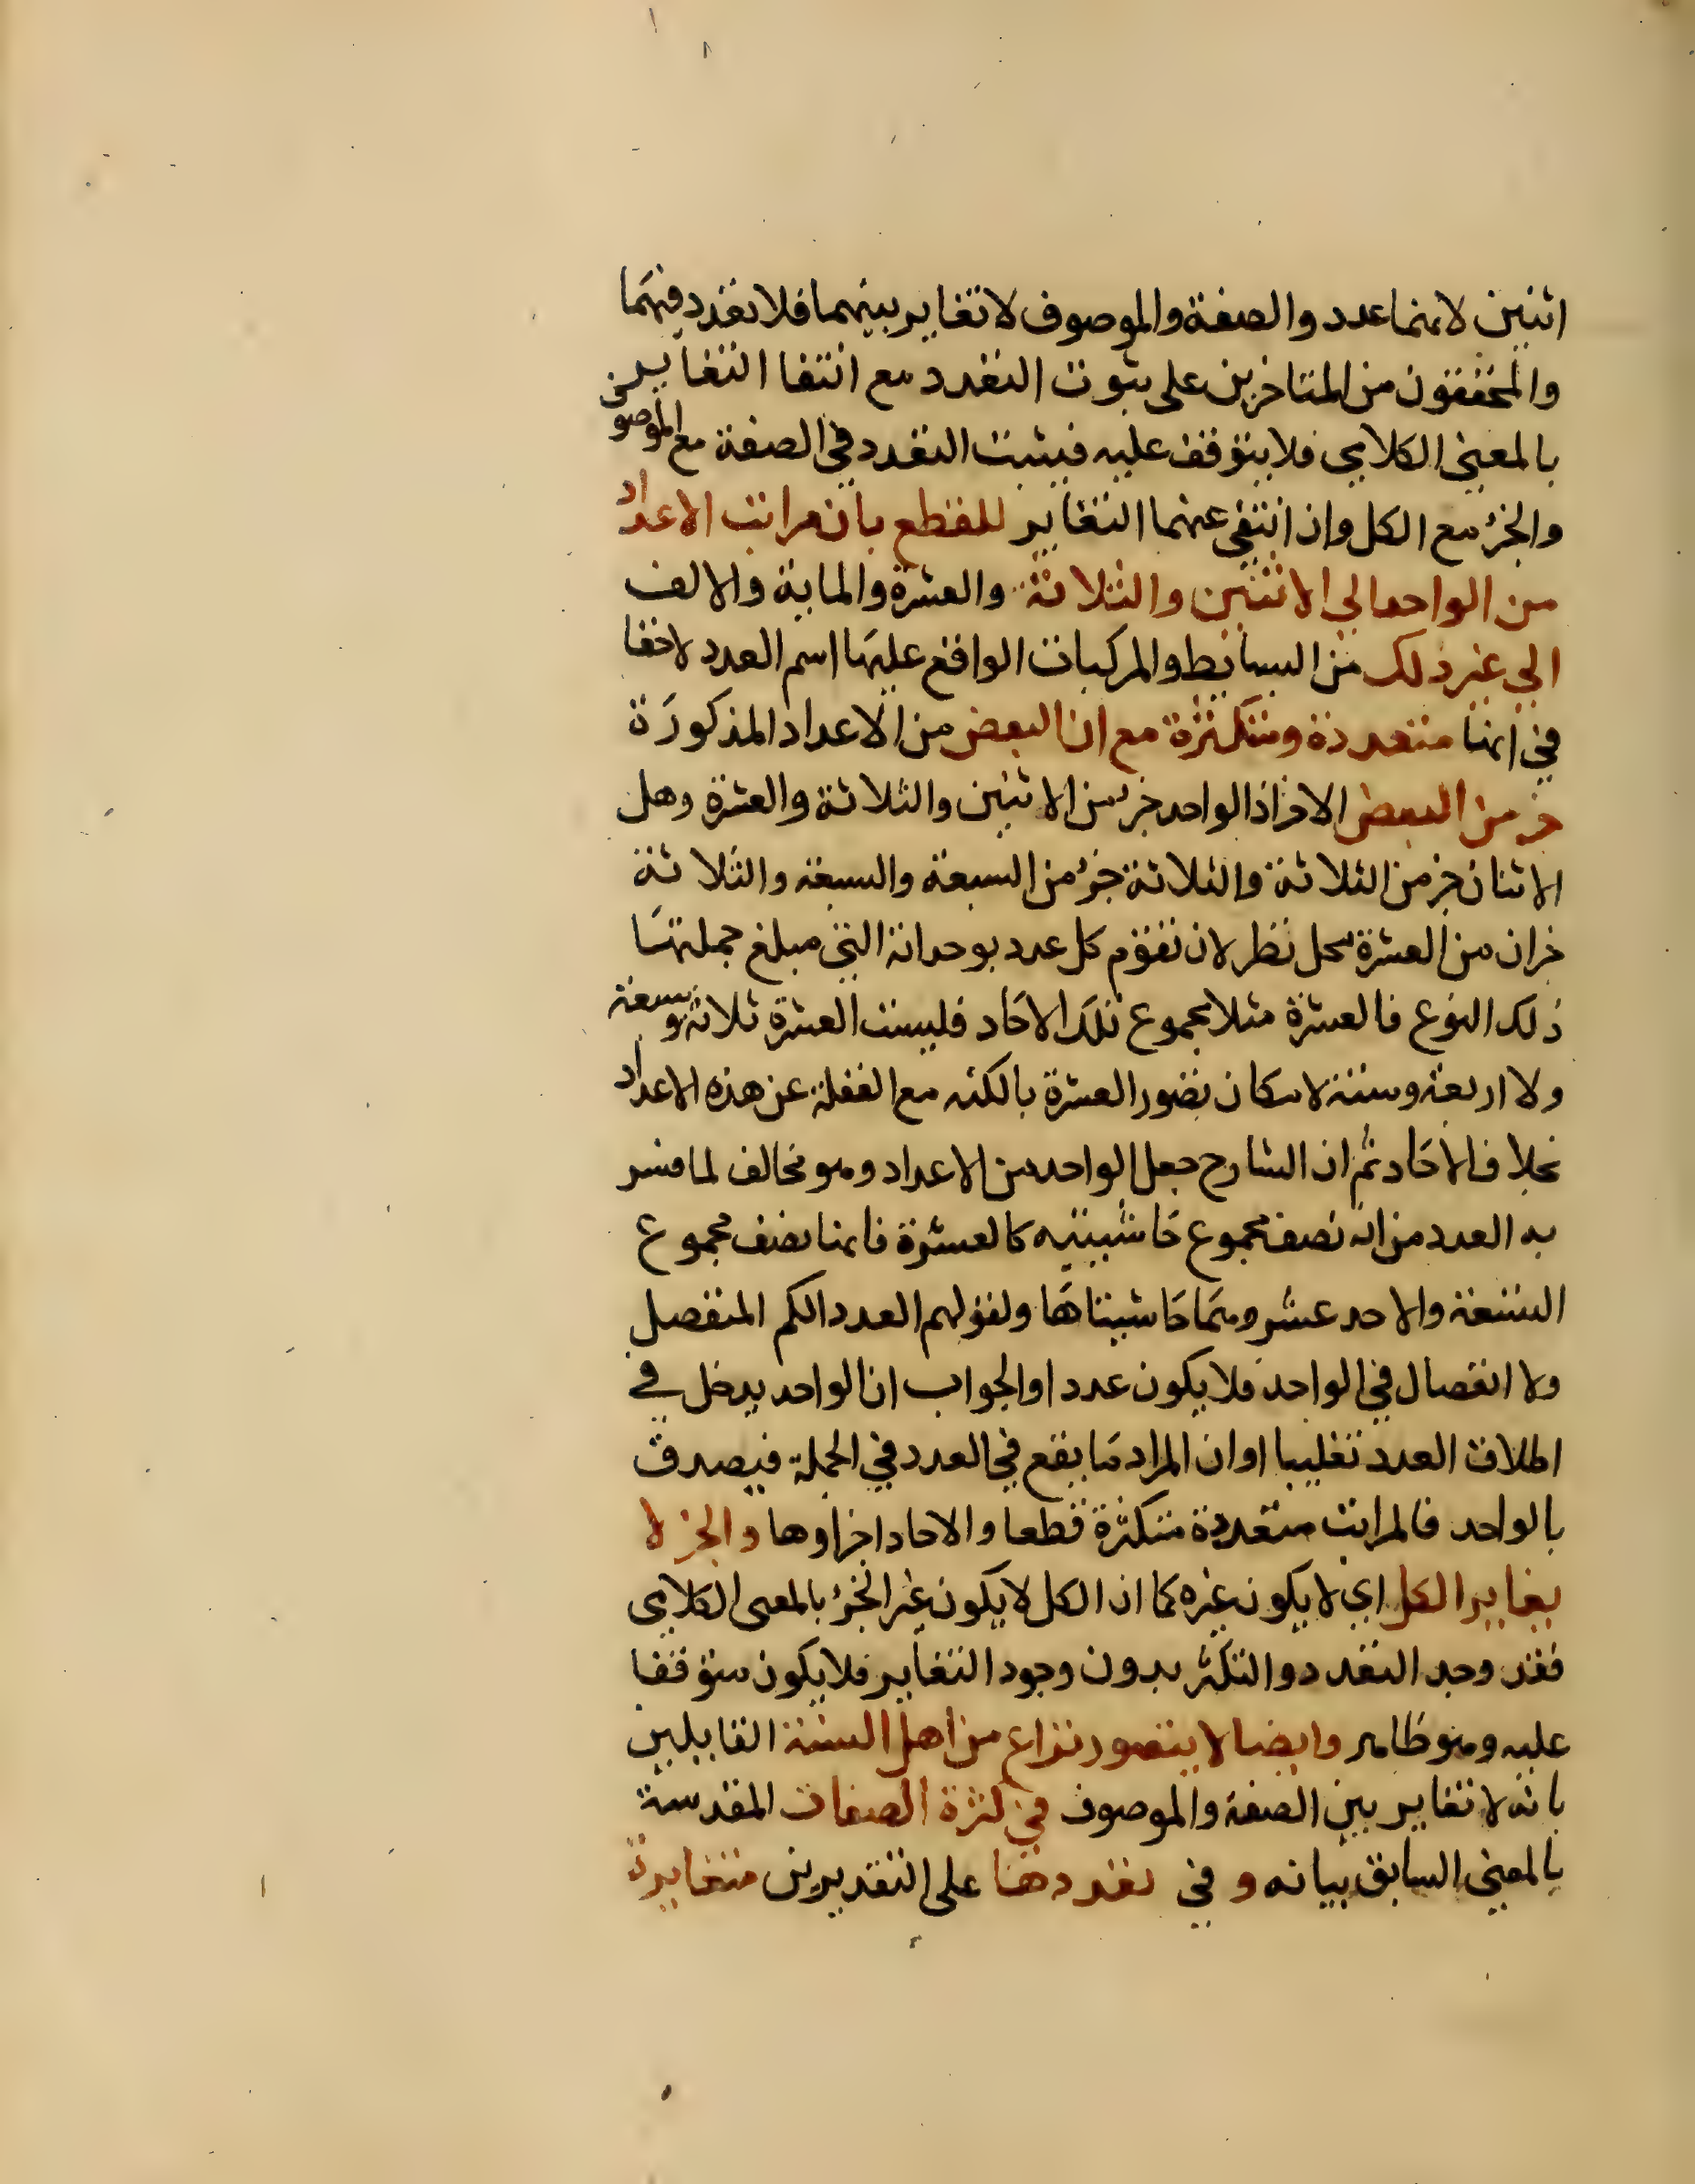 اثنين لانهما عدد والصفة والموصوف لا تغاير بينهما فلا تعدد فيهما
والمحققون من المتاخرين على ثبوت التعدد مع انتفا التغاير
بالمعنى الكلامي فلا يتوقف عليه فيثبت التعدد في الصفة مع الموصوف
والجزء مع الكل وان انتفى عنهما التغاير للقطع بان مراتب الاعداد
من الواحد الى الاثنين والثلاثة والعشرة والماية والالف
الى غير ذلك من البسائط والمركبات الواقع عليها اسم العدد لا خفا
في انها متعددة ومتكثرة مع ان البعض من الاعداد المذكورة
جزء من البعض الاخر اذ الواحد جزء من الاثنين والثلاثة والعشرة وهل
الاثنان جزء من الثلاثة والثلاثة جزء من السبعة والسبعة والثلاثة
جزان من العشرة محل نظر لان تقوم كل عدد بوحداته التي مبلغ جملتها
ذلك النوع فالعشرة مثلا مجموع تلك الاحاد فليست العشرة ثلاثة وسبعة
ولا اربعة وستة لامكان تصور العشرة بالكنه مع الغفلة عن هذه الاعداد
بخلاف الاحاد ثم ان الشارح جعل الواحد من الاعداد وهو مخالف لما فسر
به العدد من انه نصف مجموع حاشيتيه كالعشرة فانها نصف مجموع
التسعة والاحد عشر وهما حاشيتاها ولقولهم العدد الكم المنفصل
ولا انفصال في الواحد فلا يكون عددا والجواب ان الواحد يدخل في
اطلاق العدد تغليبا او ان المراد ما يقع في العدد في الجملة فيصدق
بالواحد فالمراتب متعددة متكثرة قطعا والاحاد اجزاوها والجزء لا
يغاير الكل اي لا يكون غيره كما ان الكل لا يكون غير الجزء بالمعنى الكلامي
فقد وجد التعدد والتكثر بدون وجود التغاير فلا يكون متوقفا
عليه وهو ظاهر وايضا لا يتصور نزاع من اهل السنة القايلين
بانه لا تغاير بين الصفة والموصوف في كثرة الصفات المقدسة
بالمعنى السابق بيانه و في تعددها على التقديرين متغايرة